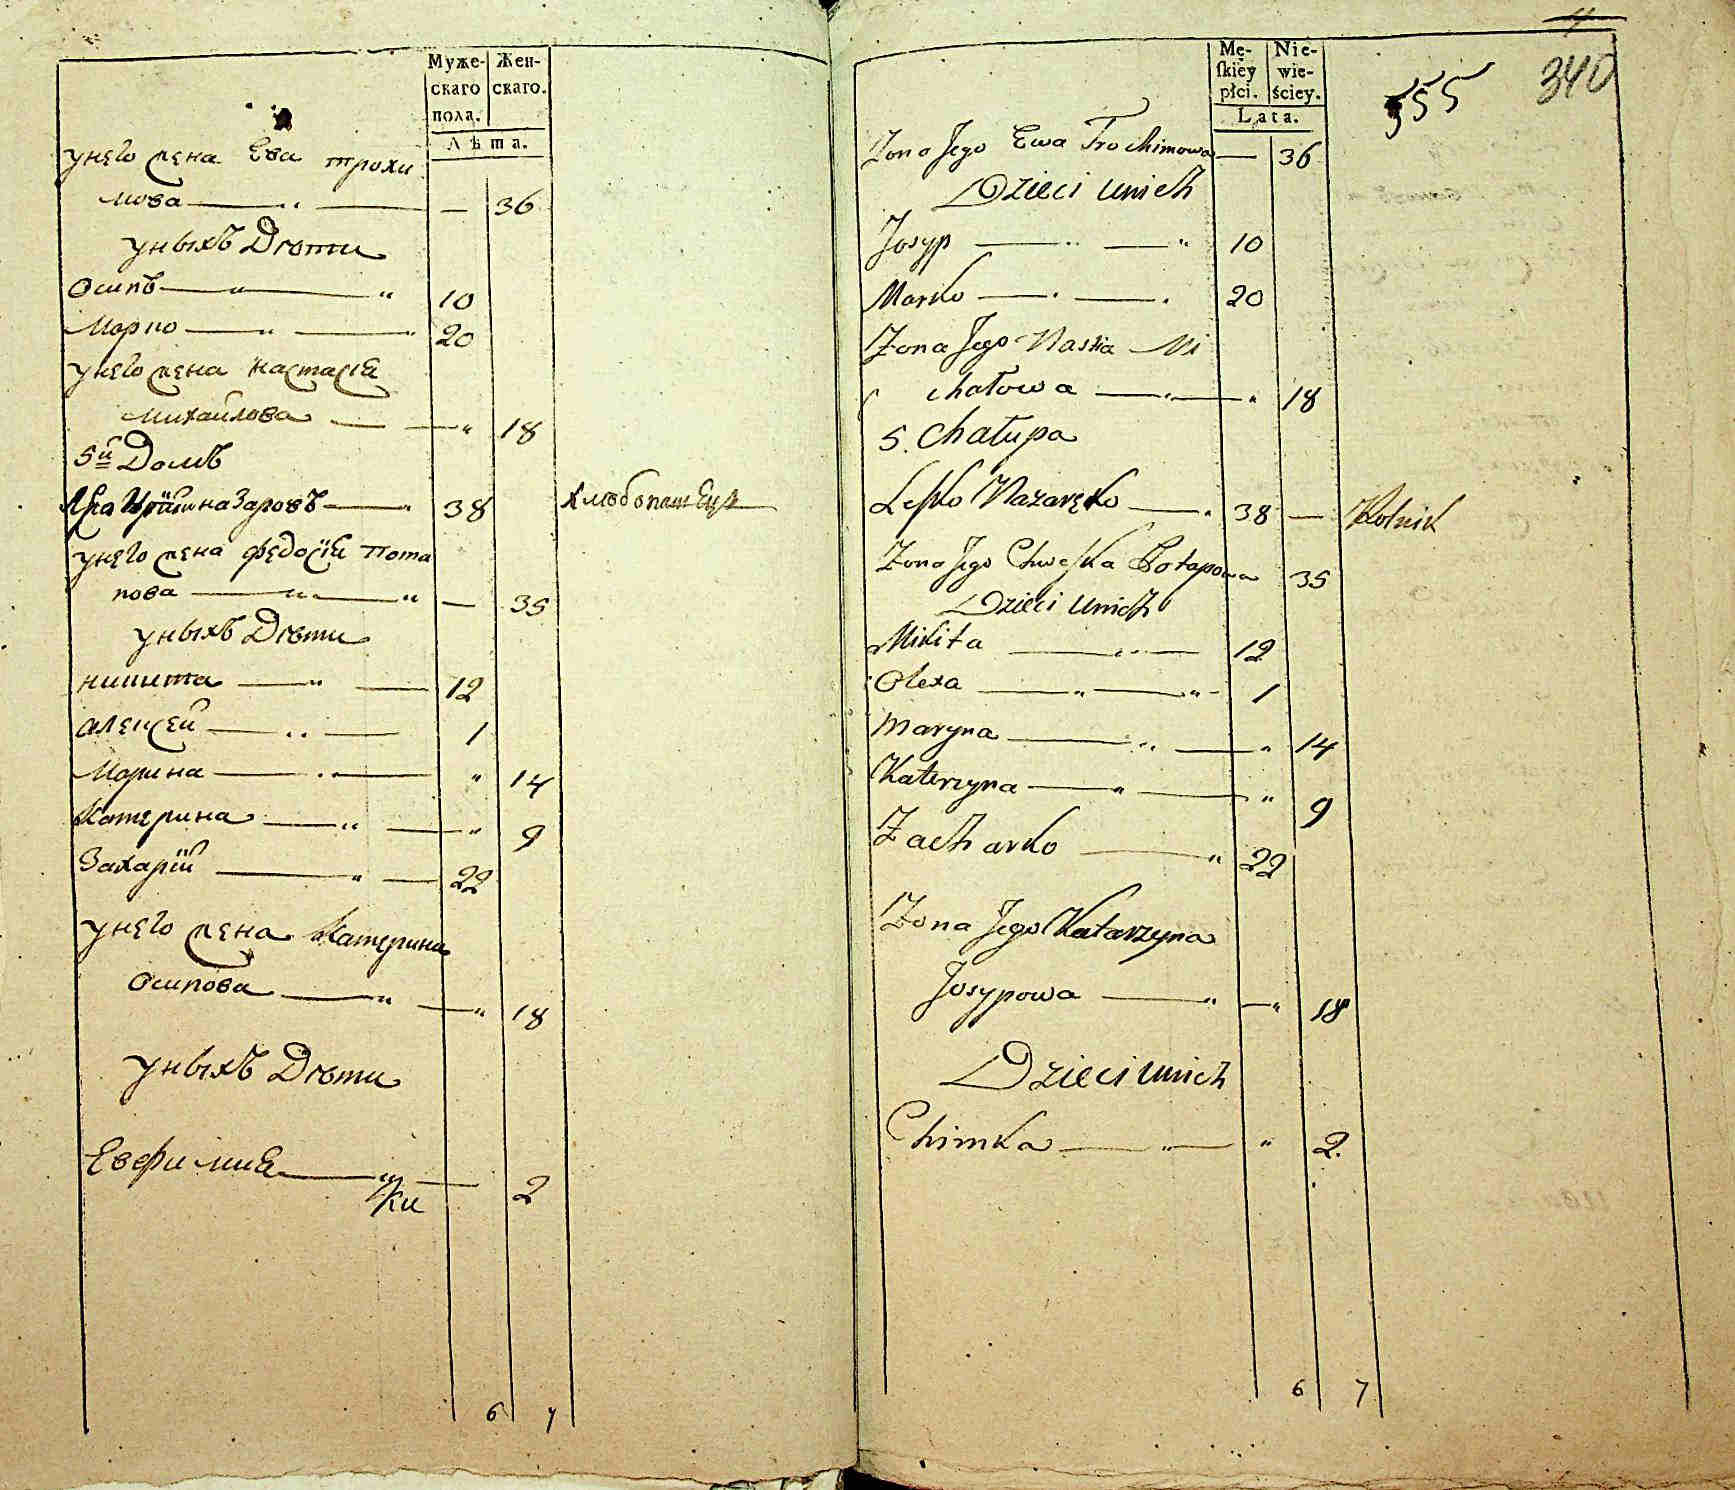 Муже-
скаго
пола.
Жен-
скаго.
Лѣта.
у него жена Ева трохи
мова — „ — — 36
у ныхъ Дѣти
Осипъ — „ — „ 10
Марко — „ — „ 20
у него жена настасія
михайлова — — „ 18
5й Домъ
назаровъ — „ 38 хлѣбопашецъ
у него жена федосія пота
пова — „ — „ — 35
у ныхъ Дѣти
никита — „ — 12
алексей — „ — 1
Марина — „ — „ 14
Катерина — „ — „ 9
Захарій — „ — 22
у него жена Катерина
Осипова — „ — „ 18
у ныхъ Дѣти
Евфимия — „ — 2
Ки
6 7
4
340
555
Mę-
ſkiey
płci.
Nie-
wie-
ściey.
Lata.
Żona Jego Ewa Trochimowa — 36
Dzieci unich
Josyp — „ — „ 10
Marko — „ — „ 20
Żona Jego Nastia Mi
chałowa — „ — „ 18
5. Chałupa
Leſko Nazaręko — „ 38 — Rolnik
Żona Jego Chweſka Potapowa 35
Dzieci unich
Mikita — „ — 12
Olexa — „ — „ 1
Maryna — „ — „ 14
Katerzyna — „ — „ 9
Zacharko — „ 22
Żona Jego Katarzyna
Josypowa — „ — „ 18
Dzieci unich
Chimka — „ — „ 2.
6 7